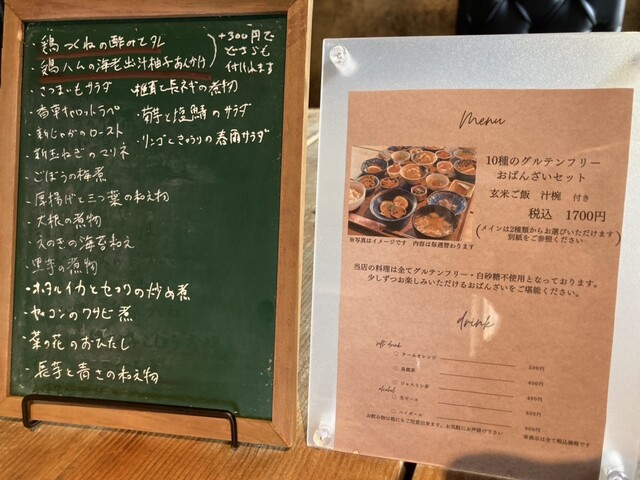 ・鶏つくねの酢みそダレ
・鶏ハムの海老出汁柚子あんかけ
+300円で
どちらも
付けれます
・さつまいもサラダ
・椎茸と長ネギの煮物
・春菊キャロットラペ
・菊芋と塩鯖のサラダ
・新じゃがのロースト
・リンゴときゅうりの春雨サラダ
・新玉ねぎのマリネ
・ごぼうの梅煮
・厚揚げと三つ葉の和え物
・大根の煮物
・えのきの海苔和え
・里芋の煮物
・ホタルイカとセロリの炒め煮
・ヤーコンのワサビ煮
・菜の花のおひたし
・長芋と青さの和え物
Menu
10種のグルテンフリー
おばんざいセット
玄米ご飯 汁椀 付き
税込 1700円
(メインは2種類からお選びいただけます
別紙をご参照ください)
※写真はイメージです 内容は毎週替わります
当店の料理は全てグルテンフリー・白砂糖不使用となっております。
少しずつお楽しみいただけるおばんざいをご堪能ください。
drink
soft drink
○ クールオレンジ 500円
○ 烏龍茶 400円
○ ジャスミン茶 400円
alcohol
○ 生ビール 600円
○ ハイボール 600円
お飲み物は他にもご用意出来ます。お気軽にお声掛け下さい
※表示は全て税込価格です